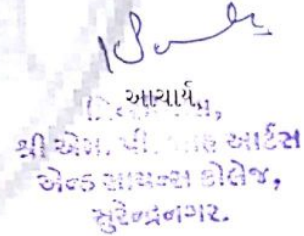 આચાર્ય,
શ્રી એમ. પી. શાહ આર્ટસ
એન્ડ સાયન્સ કોલેજ,
સુરેન્દ્રનગર.